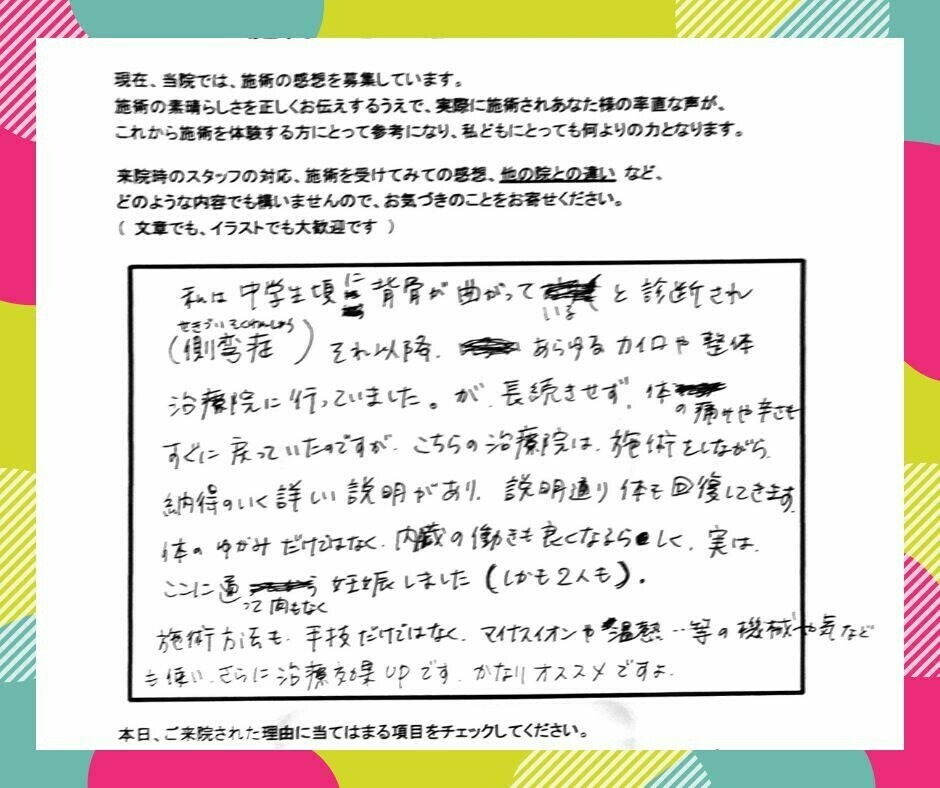 現在、当院では、施術の感想を募集しています。
施術の素晴らしさを正しくお伝えするうえで、実際に施術されあなた様の率直な声が、
これから施術を体験する方にとって参考になり、私どもにとっても何よりの力となります。
来院時のスタッフの対応、施術を受けてみての感想、他の院との違い など、
どのような内容でも構いませんので、お気づきのことをお寄せください。
( 文章でも、イラストでも大歓迎です )
私は中学生頃に背骨が曲がっていると診断され
せきづいそくわんしょう
(側弯症)それ以降、あらゆるカイロや整体
治療院に行っていました。が、長続きせず、体の痛みや辛さも
すぐに戻っていたのですが、こちらの治療院は、施術をしながら、
納得のいく詳しい説明があり、説明通り体も回復してきます。
体のゆがみだけではなく、内蔵の働きも良くなるらしく、実は、
ここに通って間もなく妊娠しました(しかも2人も)。
施術方法も、手技だけではなく、マイナスイオンや温熱…等の機械や気など
も使い、さらに治療効果UPです。かなりオススメですよ。
本日、ご来院された理由に当てはまる項目をチェックしてください。